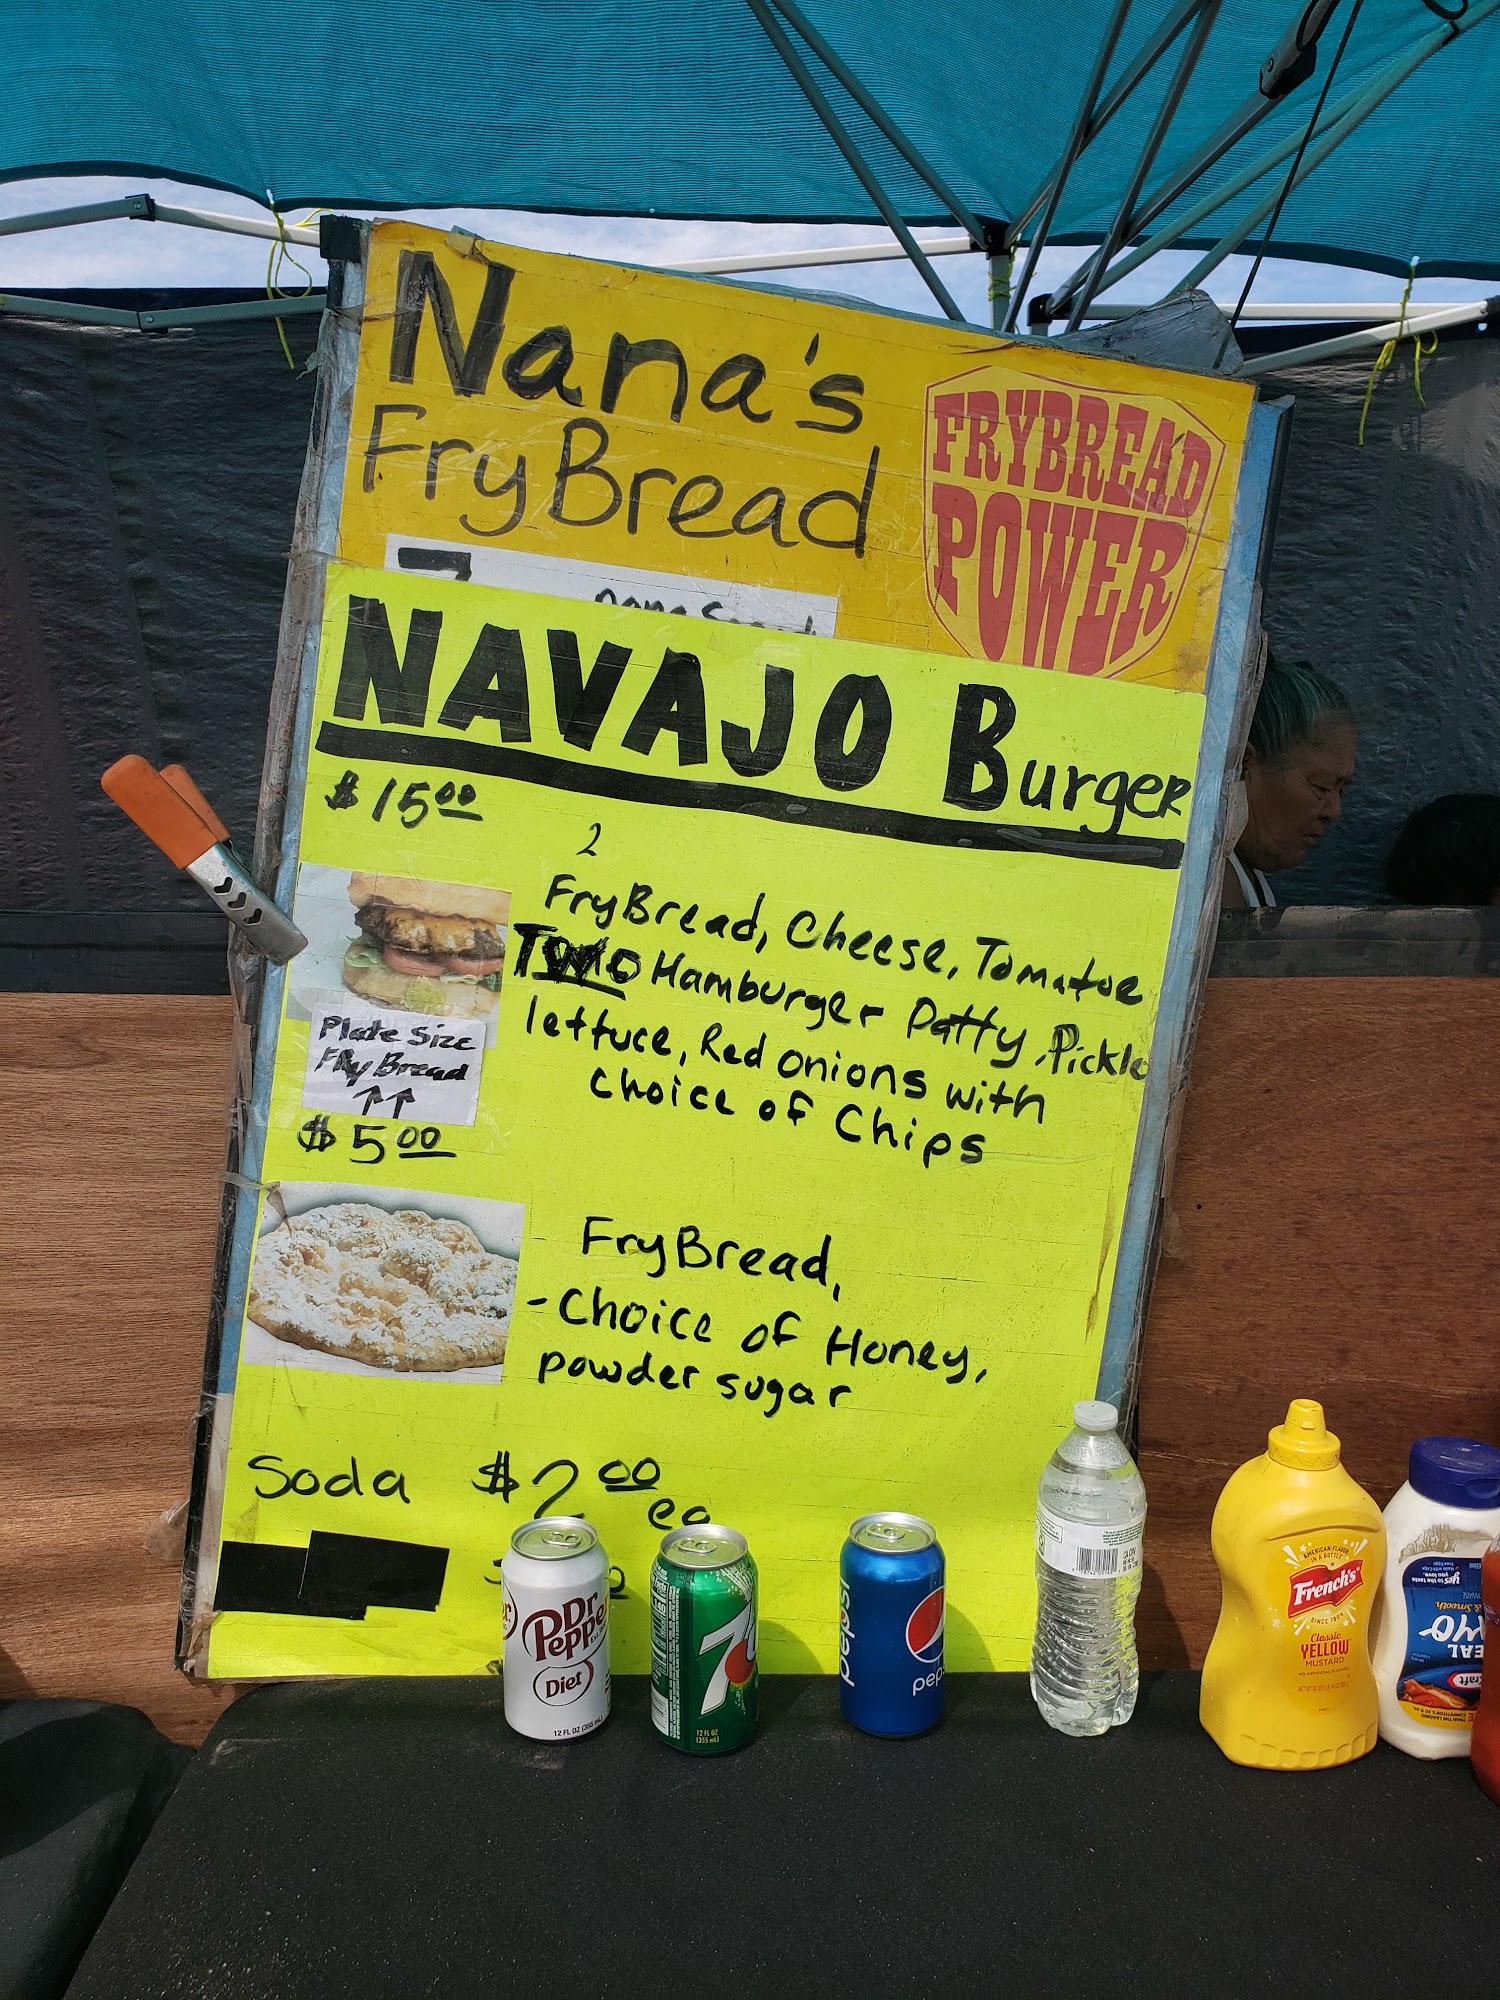 Nana's
FryBread
FRYBREAD
POWER
NAVAJO Burger
$15.00
2
FryBread, Cheese, Tomatoe
TWO Hamburger Patty, Pickle
lettuce, Red onions with
choice of Chips
Plate Size
Fry Bread
↑↑
$5.00
FryBread,
- Choice of Honey,
powder sugar
Soda $2.00 ea
Dr
Pepper
Diet
12 FL OZ (355 mL)
7
12 FL OZ
(355 mL)
pepsi
pepsi
AMERICAN FLAVOR
IN A BOTTLE
French's
SINCE 1904
Classic
YELLOW
MUSTARD
Kraft
REAL